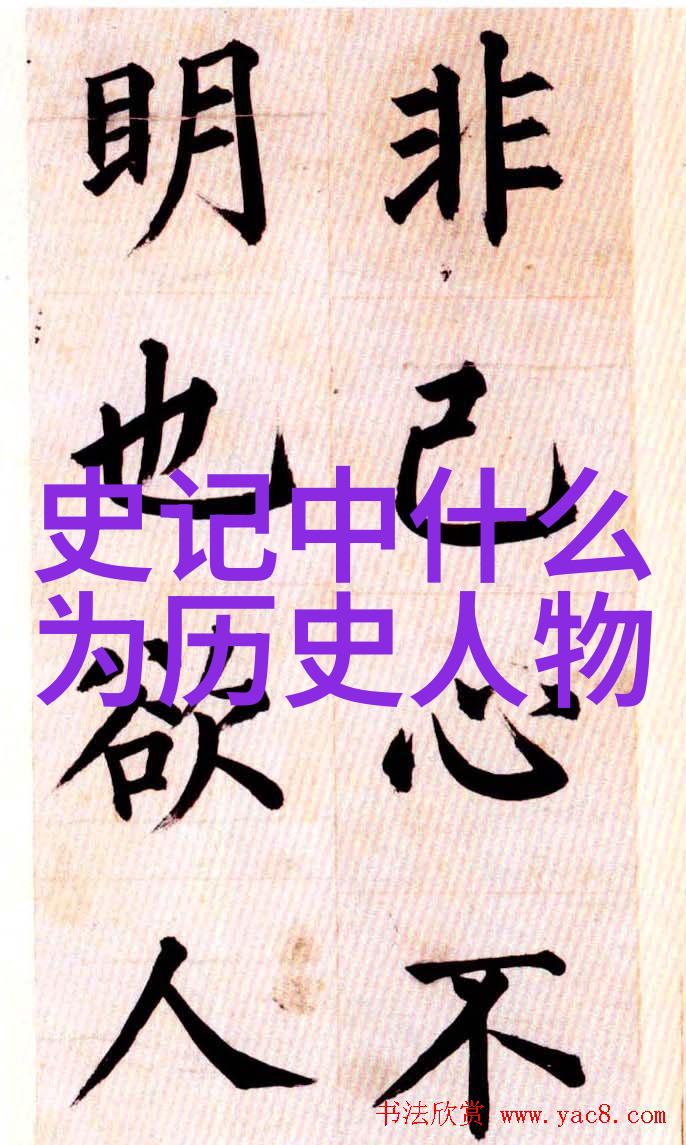 非己心不
明也欲人
史记中什么
为历史人物
书法欣赏 www.yac8.com